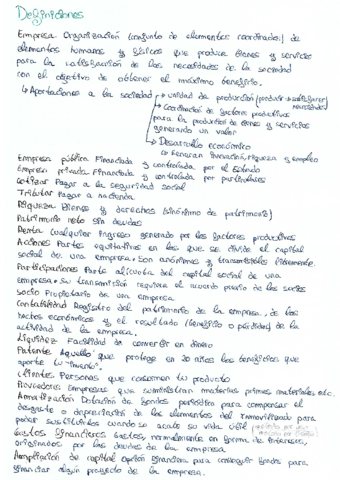 Definiciones
Empresa Organización (conjunto de elementos coordinados) de
elementos humanos y físicos que produce bienes y servicios
para la satisfacción de las necesidades de la sociedad
con el objetivo de obtener el máximo beneficio.
↳ Aportaciones a la sociedad → unidad de producción (producir → satisfacer necesidades)
→ Coordinación de factores productivos
para la producción de bienes y servicios
generando un valor
→ Desarrollo económico
↳ Generan innovación, riqueza y empleo
Empresa pública Financiada y controlada por el Estado
Empresa privada Financiada y controlada por particulares
Cotizar Pagar a la seguridad social
Tributar Pagar a hacienda
Riqueza Bienes y derechos (sinónimo de patrimonio)
Patrimonio neto sin deudas
Renta Cualquier ingreso generado por los factores productivos
Acciones Partes equitativas en las que se divide el capital
social de una empresa. Son anónimas y transmisibles libremente.
Participaciones Parte alícuota del capital social de una
empresa. Su transmisión requiere el acuerdo previo de los socios
Socio Propietario de una empresa
Contabilidad Registro del patrimonio de la empresa, de los
hechos económicos y el resultado (beneficio o pérdida) de la
actividad de la empresa.
Liquidez Facilidad de convertir en dinero
Patente Aquello que protege en 20 años los beneficios que
aporte tu "invento".
Clientes Personas que consumen tu producto
Proveedores Empresas que suministran materias primas, materiales, etc.
Amortización Dotación de fondos periódica para compensar el
desgaste o depreciación de los elementos del inmovilizado para
poder sustituirlos cuando se acabe su vida útil
Gastos financieros Gastos, normalmente en forma de intereses,
originados por las deudas de la empresa.
Ampliación de capital Opción financiera para conseguir fondos para
financiar algún proyecto de la empresa.